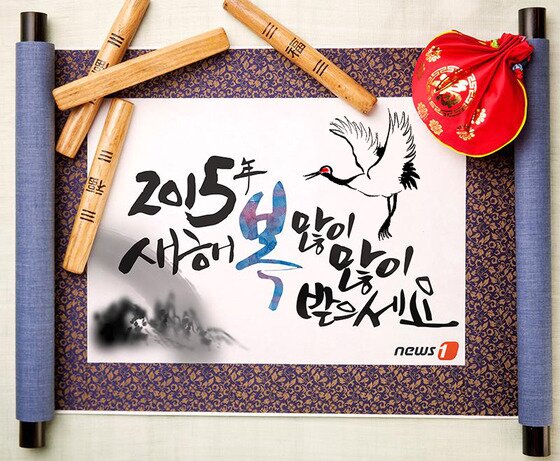 福
福
福
2015年
새해 복 많이 많이
받으세요
news1